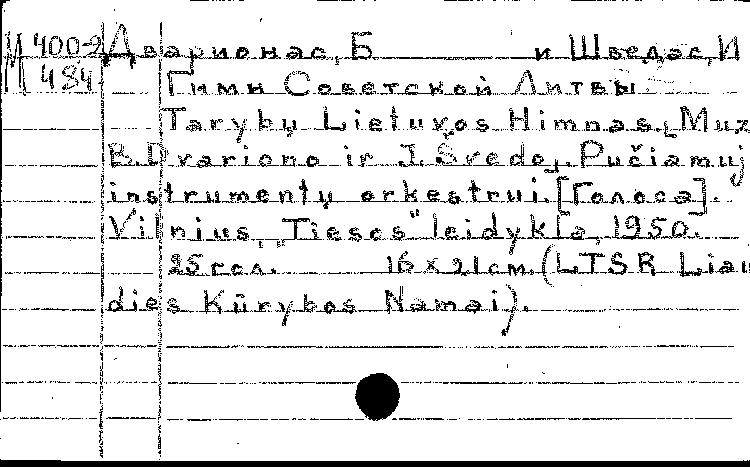 М 400-2 Дварионас, Б и Шведас, И
М 484 Гимн Советской Литвы.
Tarybų Lietuvos Himnas. [Muz
B. Dvariono ir J. Švedo]. Pučiamųj
instrumentų orkestrui. [Голоса].
Vilnius, „Tiesos" leidykla, 1950.
25 гол. 16 x 21 см. (LTSR Liau
dies Kūrybos Namai).